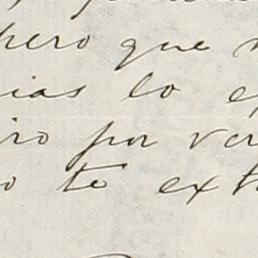 pero que
ias lo
iro por ver
o te ext